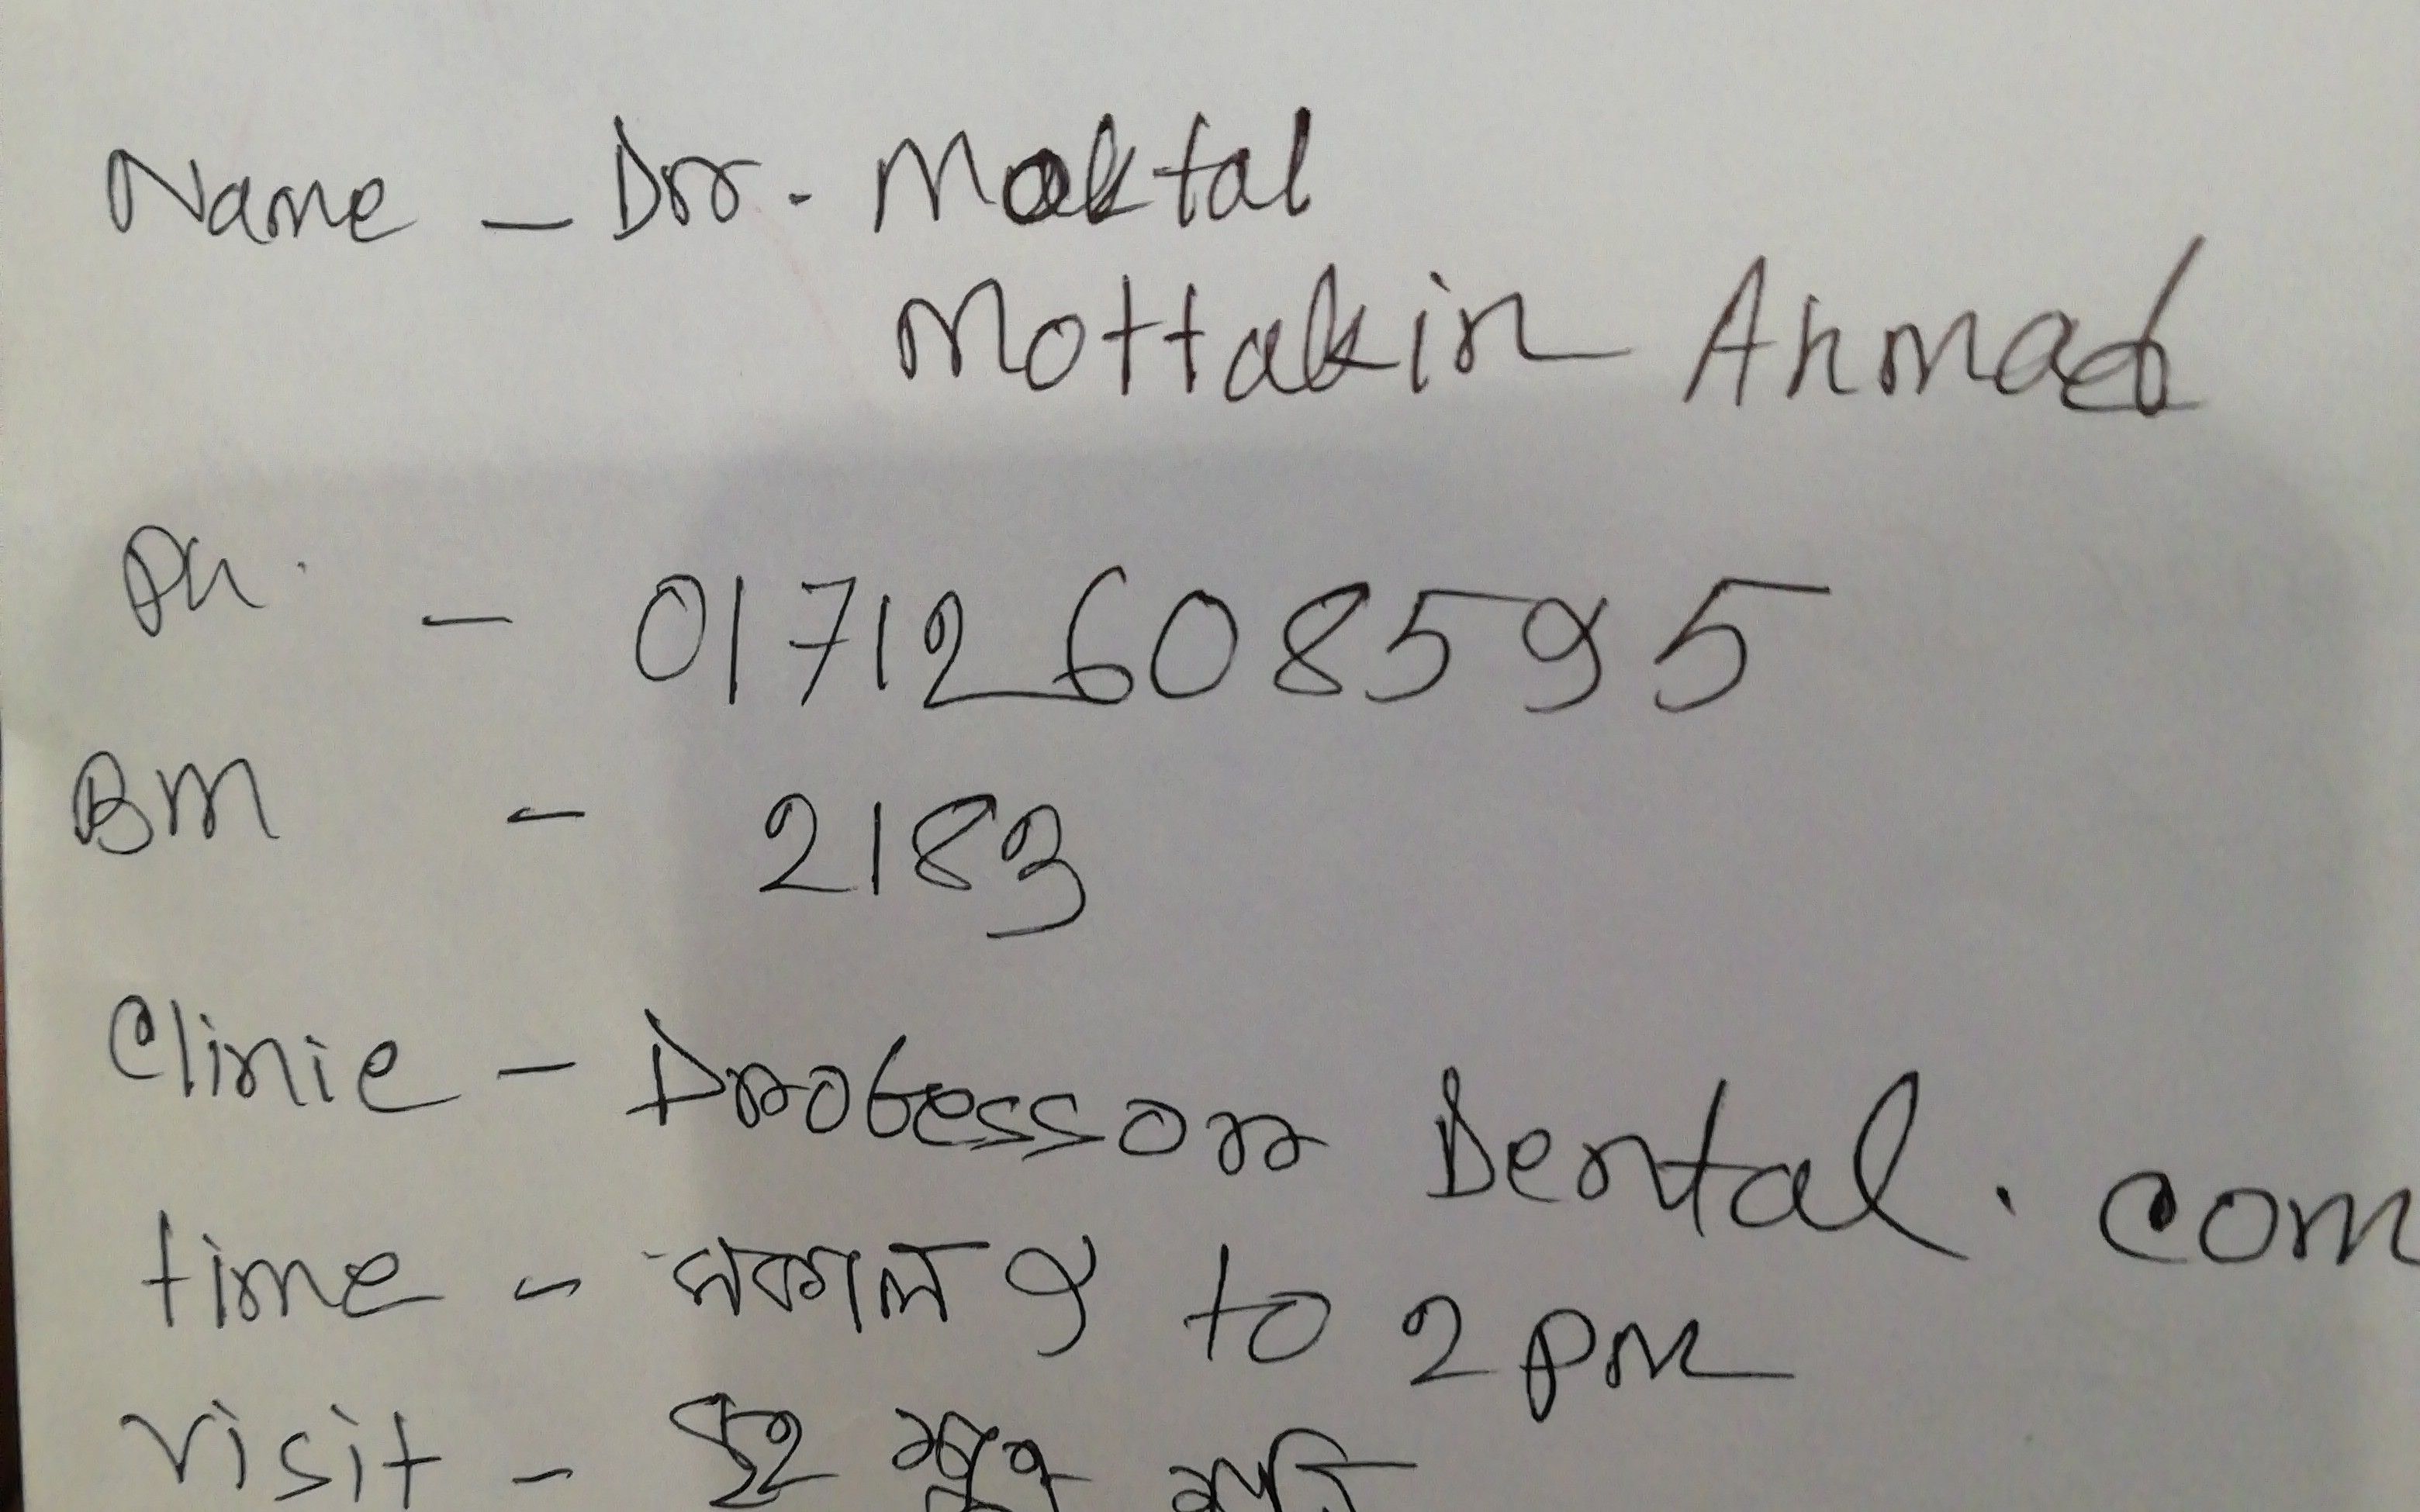 Name - Dr. Moktal
Mottakin Ahmad
Ph. - 01712608595
BM - 2183
Clinic - Professor Dental.com
time - সকাল ৯ to 2 pm
Visit -